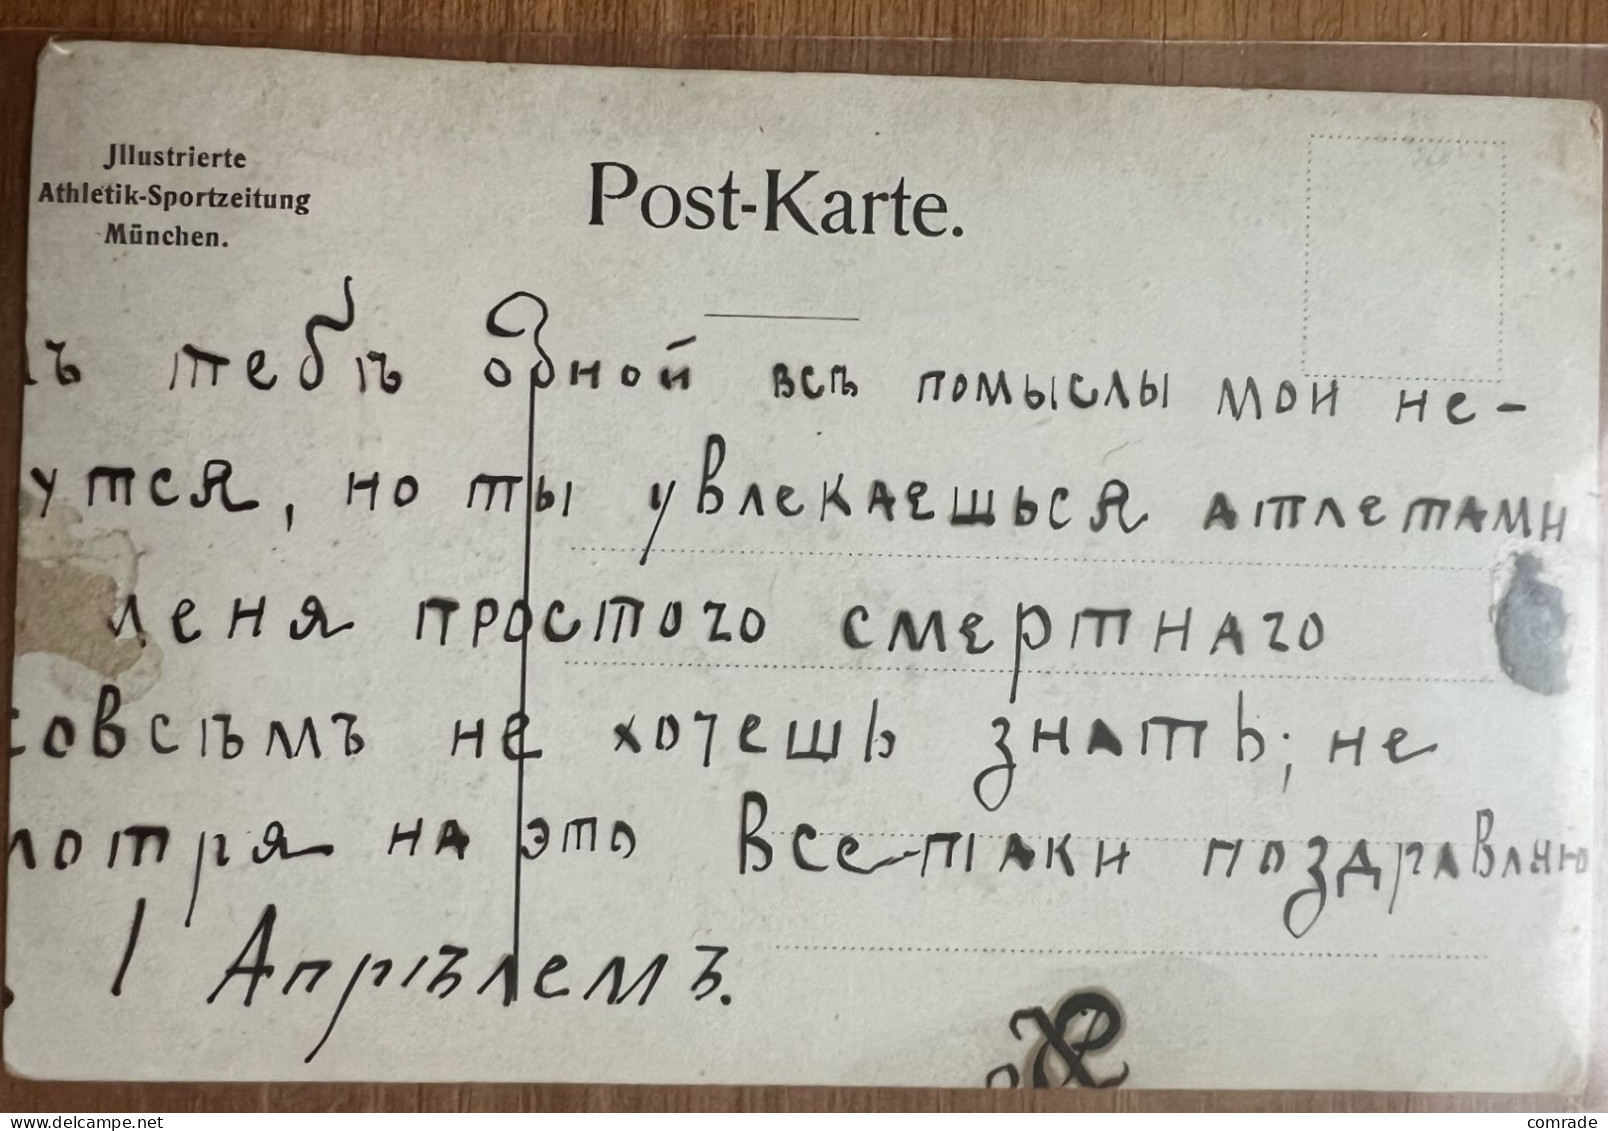 Jllustrierte
Athletik-Sportzeitung
München.
Post-Karte.
ъ тебѣ одной всѣ помыслы мои не-
утся, но ты увлекаешься атлетами
меня простого смертнаго
совсѣмъ не хочешь знать; не
мотря на это все-таки поздравляю
1 Апрѣлемъ.
comrade